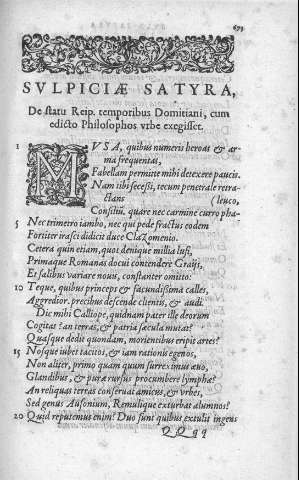 673
SVLPICIÆ SATYRA,
De statu Reip. temporibus Domitiani, cum
edicto Philosophos vrbe exegisset.
1 MVSA, quibus numeris heroas & ar-
ma frequentas,
Fabellam permitte mihi detexere paucis.
Nam tibi secessi, tecum penetrale retra-
ctans (leuco,
Consiliū. quare nec carmine curro pha-
5 Nec trimetro iambo, nec qui pede fractus eodem
Fortiter irasci didicit duce Clazomenio.
Cetera quin etiam, quot denique millia lusi,
Primaque Romanas docui contendere Graijs,
Et salibus variare nouis, constanter omitto:
10 Teque, quibus princeps & facundissima calles,
Aggredior. precibus descende clientis, & audi.
Dic mihi Calliope, quidnam pater ille deorum
Cogitat? an terras, & patria secula mutat?
Quasque dedit quondam, morientibus eripit artes?
15 Nosque iubet tacitos, & iam rationis egenos,
Non aliter, primo quam quum surreximus æuo,
Glandibus, & puræ rursus procumbere lymphæ?
An reliquas terras conseruat amicus, & vrbes,
Sed genus Ausonium, Remulique exturbat alumnos?
20 Quid reputemus enim? Duo sunt quibus extulit ingens
QQqq